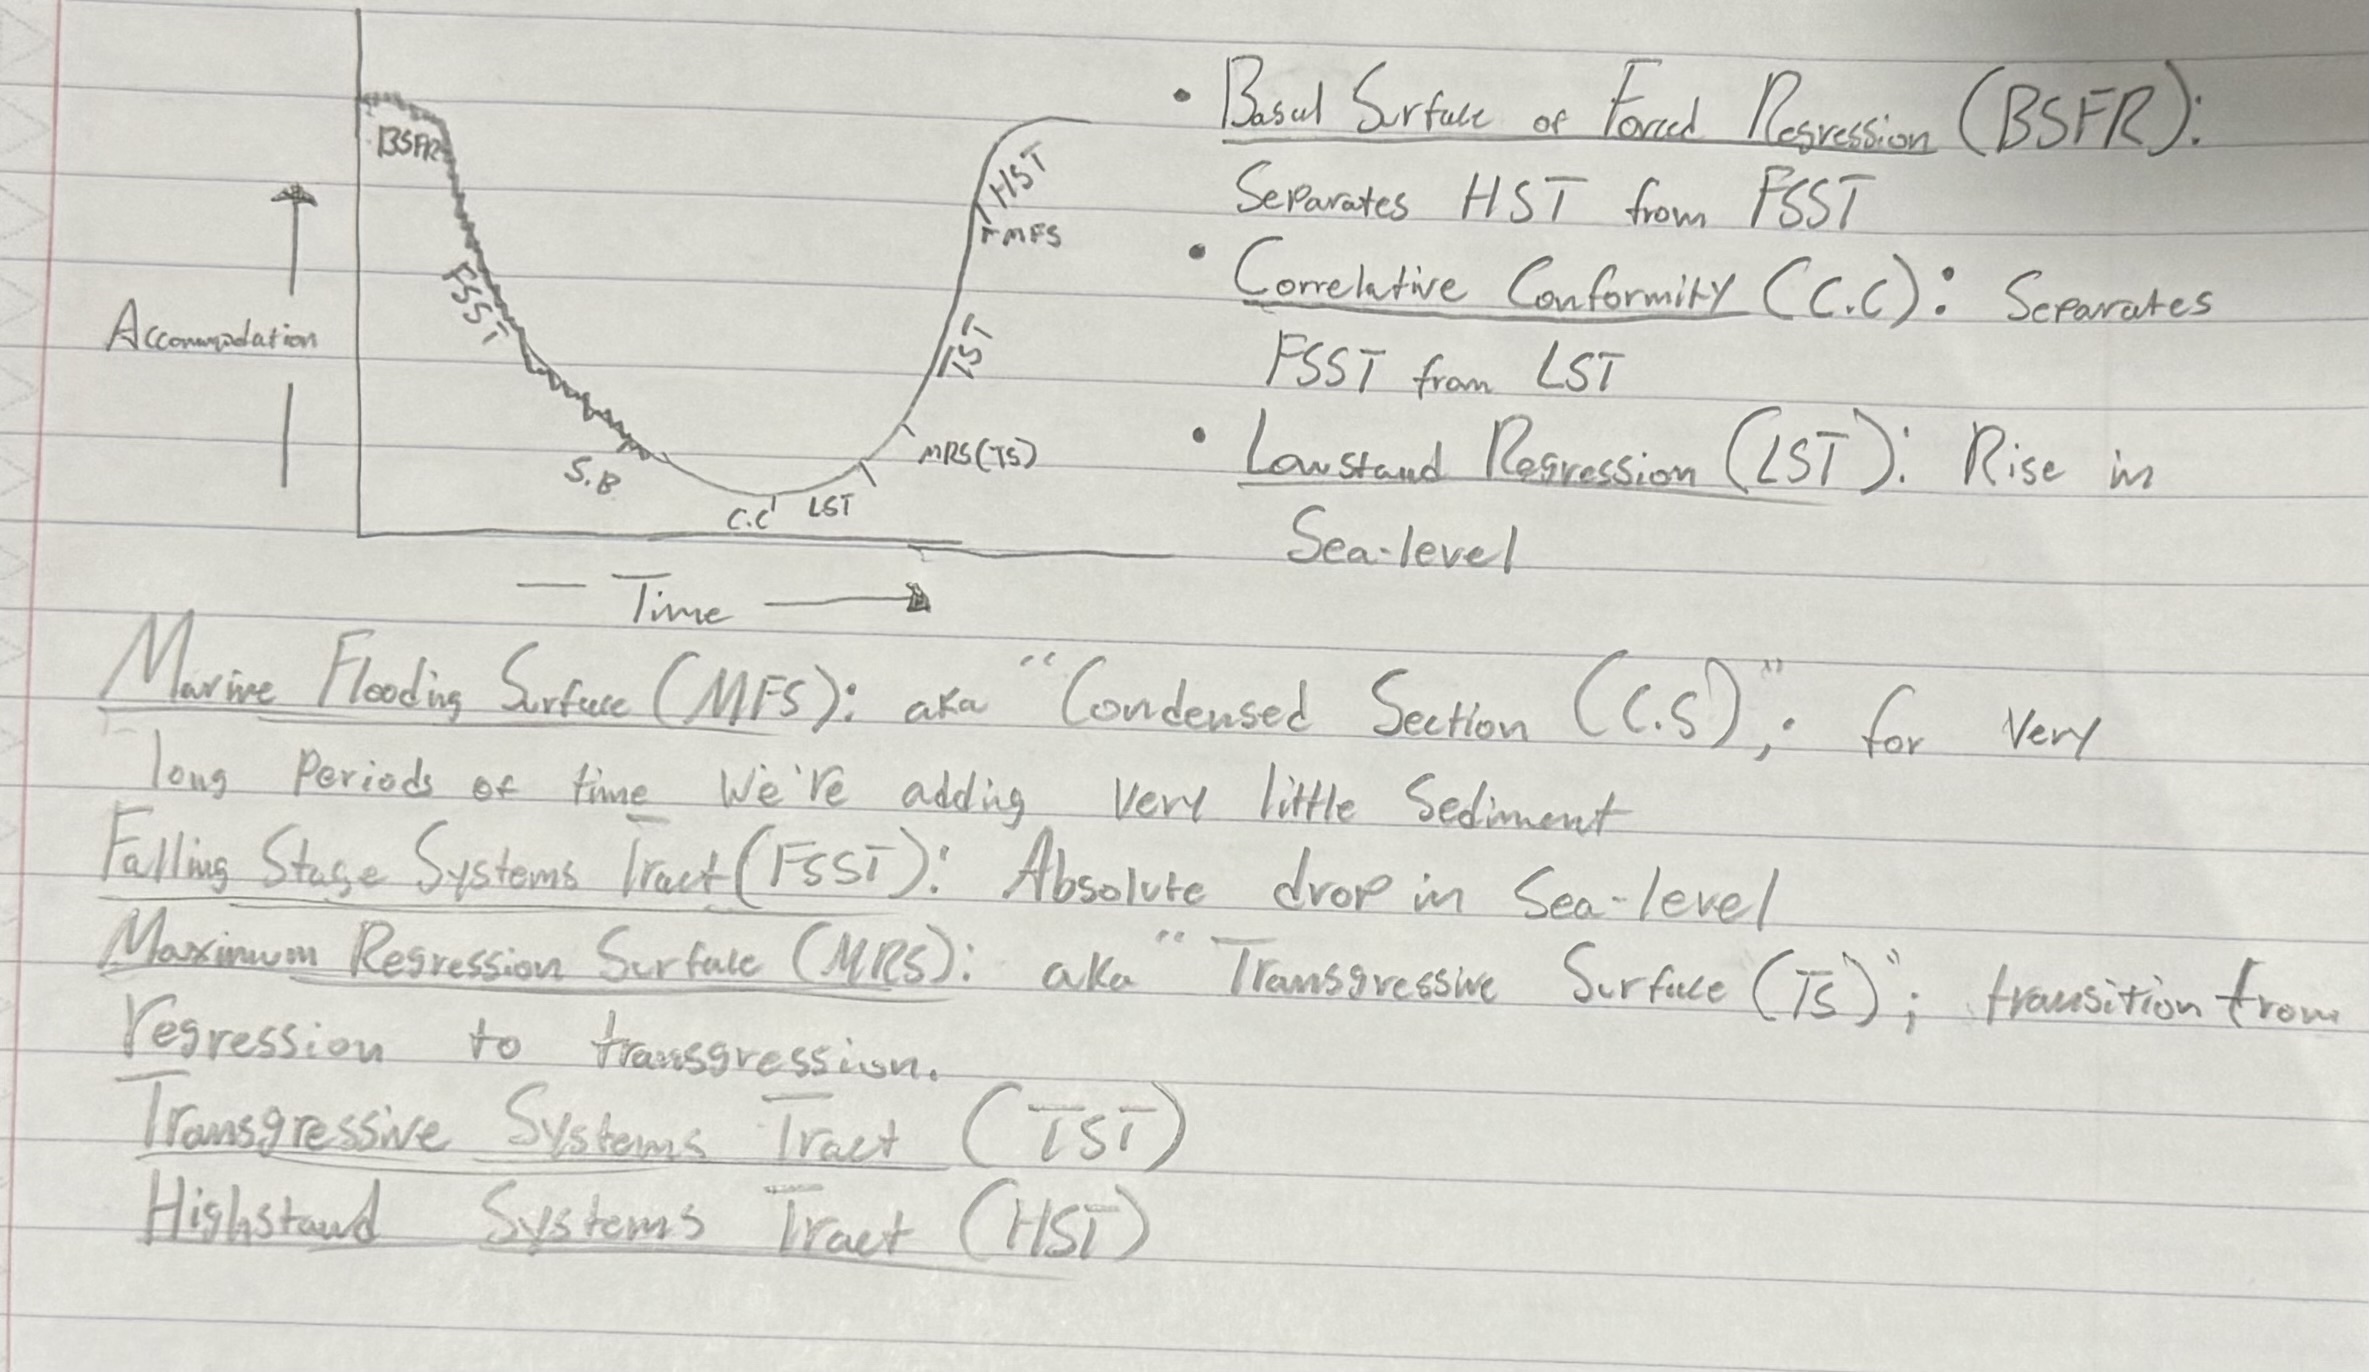 BSFR
FSST
S.B.
C.C
LST
MRS(TS)
TST
MFS
HST
Accommodation
Time
• Basal Surface of Forced Regression (BSFR):
Separates HST from FSST
• Correlative Conformity (C.C): Separates
FSST from LST
• Lowstand Regression (LST): Rise in
Sea-level
Marine Flooding Surface (MFS): aka "Condensed Section (C.S)"; for very
long periods of time we're adding very little sediment
Falling Stage Systems Tract (FSST): Absolute drop in Sea-level
Maximum Regression Surface (MRS): aka "Transgressive Surface (TS)"; transition from
regression to transgression.
Transgressive Systems Tract (TST)
Highstand Systems Tract (HST)